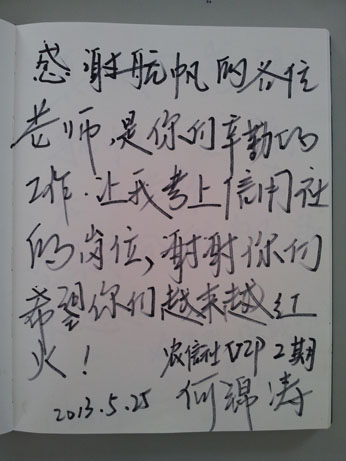 感谢航帆的各位
老师,是你们辛勤的
工作.让我考上信用社
的岗位,谢谢你们
希望你们越来越红
火!
农信社VIP 2期
何锦涛
2013.5.25